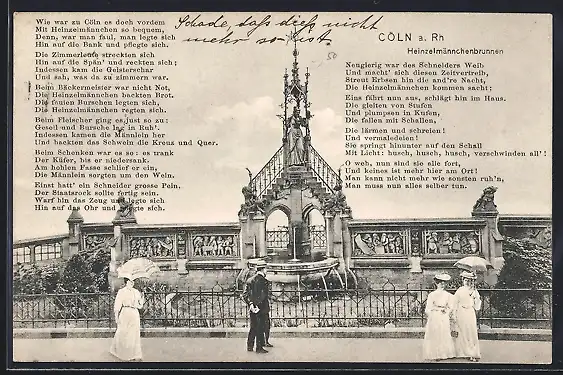 Schade, daß dieß nicht
mehr so ist.
CÖLN a. Rh
Heinzelmännchenbrunnen
Wie war zu Cöln es doch vordem
Mit Heinzelmännchen so bequem,
Denn, war man faul, man legte sich
Hin auf die Bank und pflegte sich.
Die Zimmerleute streckten sich
Hin auf die Spän' und reckten sich;
Indessen kam die Geisterschar
Und sah, was da zu zimmern war.
Beim Bäckermeister war nicht Not,
Die Heinzelmännchen backten Brot.
Die faulen Burschen legten sich,
Die Heinzelmännchen regten sich.
Beim Fleischer ging es just so zu:
Gesell und Bursche lag in Ruh'.
Indessen kamen die Männlein her
Und hackten das Schwein die Kreuz und Quer.
Beim Schenken war es so: es trank
Der Küfer, bis er niedersank.
Am hohlen Fasse schlief er ein,
Die Männlein sorgten um den Wein.
Einst hatt' ein Schneider grosse Pein,
Der Staatsrock sollte fertig sein.
Warf hin das Zeug und legte sich
Hin auf das Ohr und pflegte sich.
Neugierig war des Schneiders Weib
Und macht' sich diesen Zeitvertreib,
Streut Erbsen hin die and're Nacht,
Die Heinzelmännchen kommen sacht;
Eins fährt nun aus, schlägt hin im Haus.
Die gleiten von Stufen
Und plumpsen in Kufen,
Die fallen mit Schallen,
Die lärmen und schreien!
Und vermaledeien!
Sie springt hinunter auf den Schall
Mit Licht: husch, husch, husch, verschwinden all'!
O weh, nun sind sie alle fort,
Und keines ist mehr hier am Ort!
Man kann nicht mehr wie sonsten ruh'n,
Man muss nun alles selber tun.